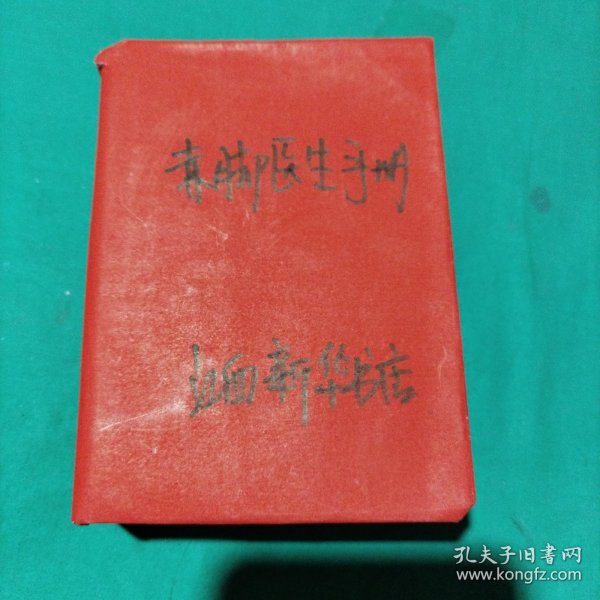 赤脚医生手册
新华书店
孔夫子旧書网
www.kongfz.com